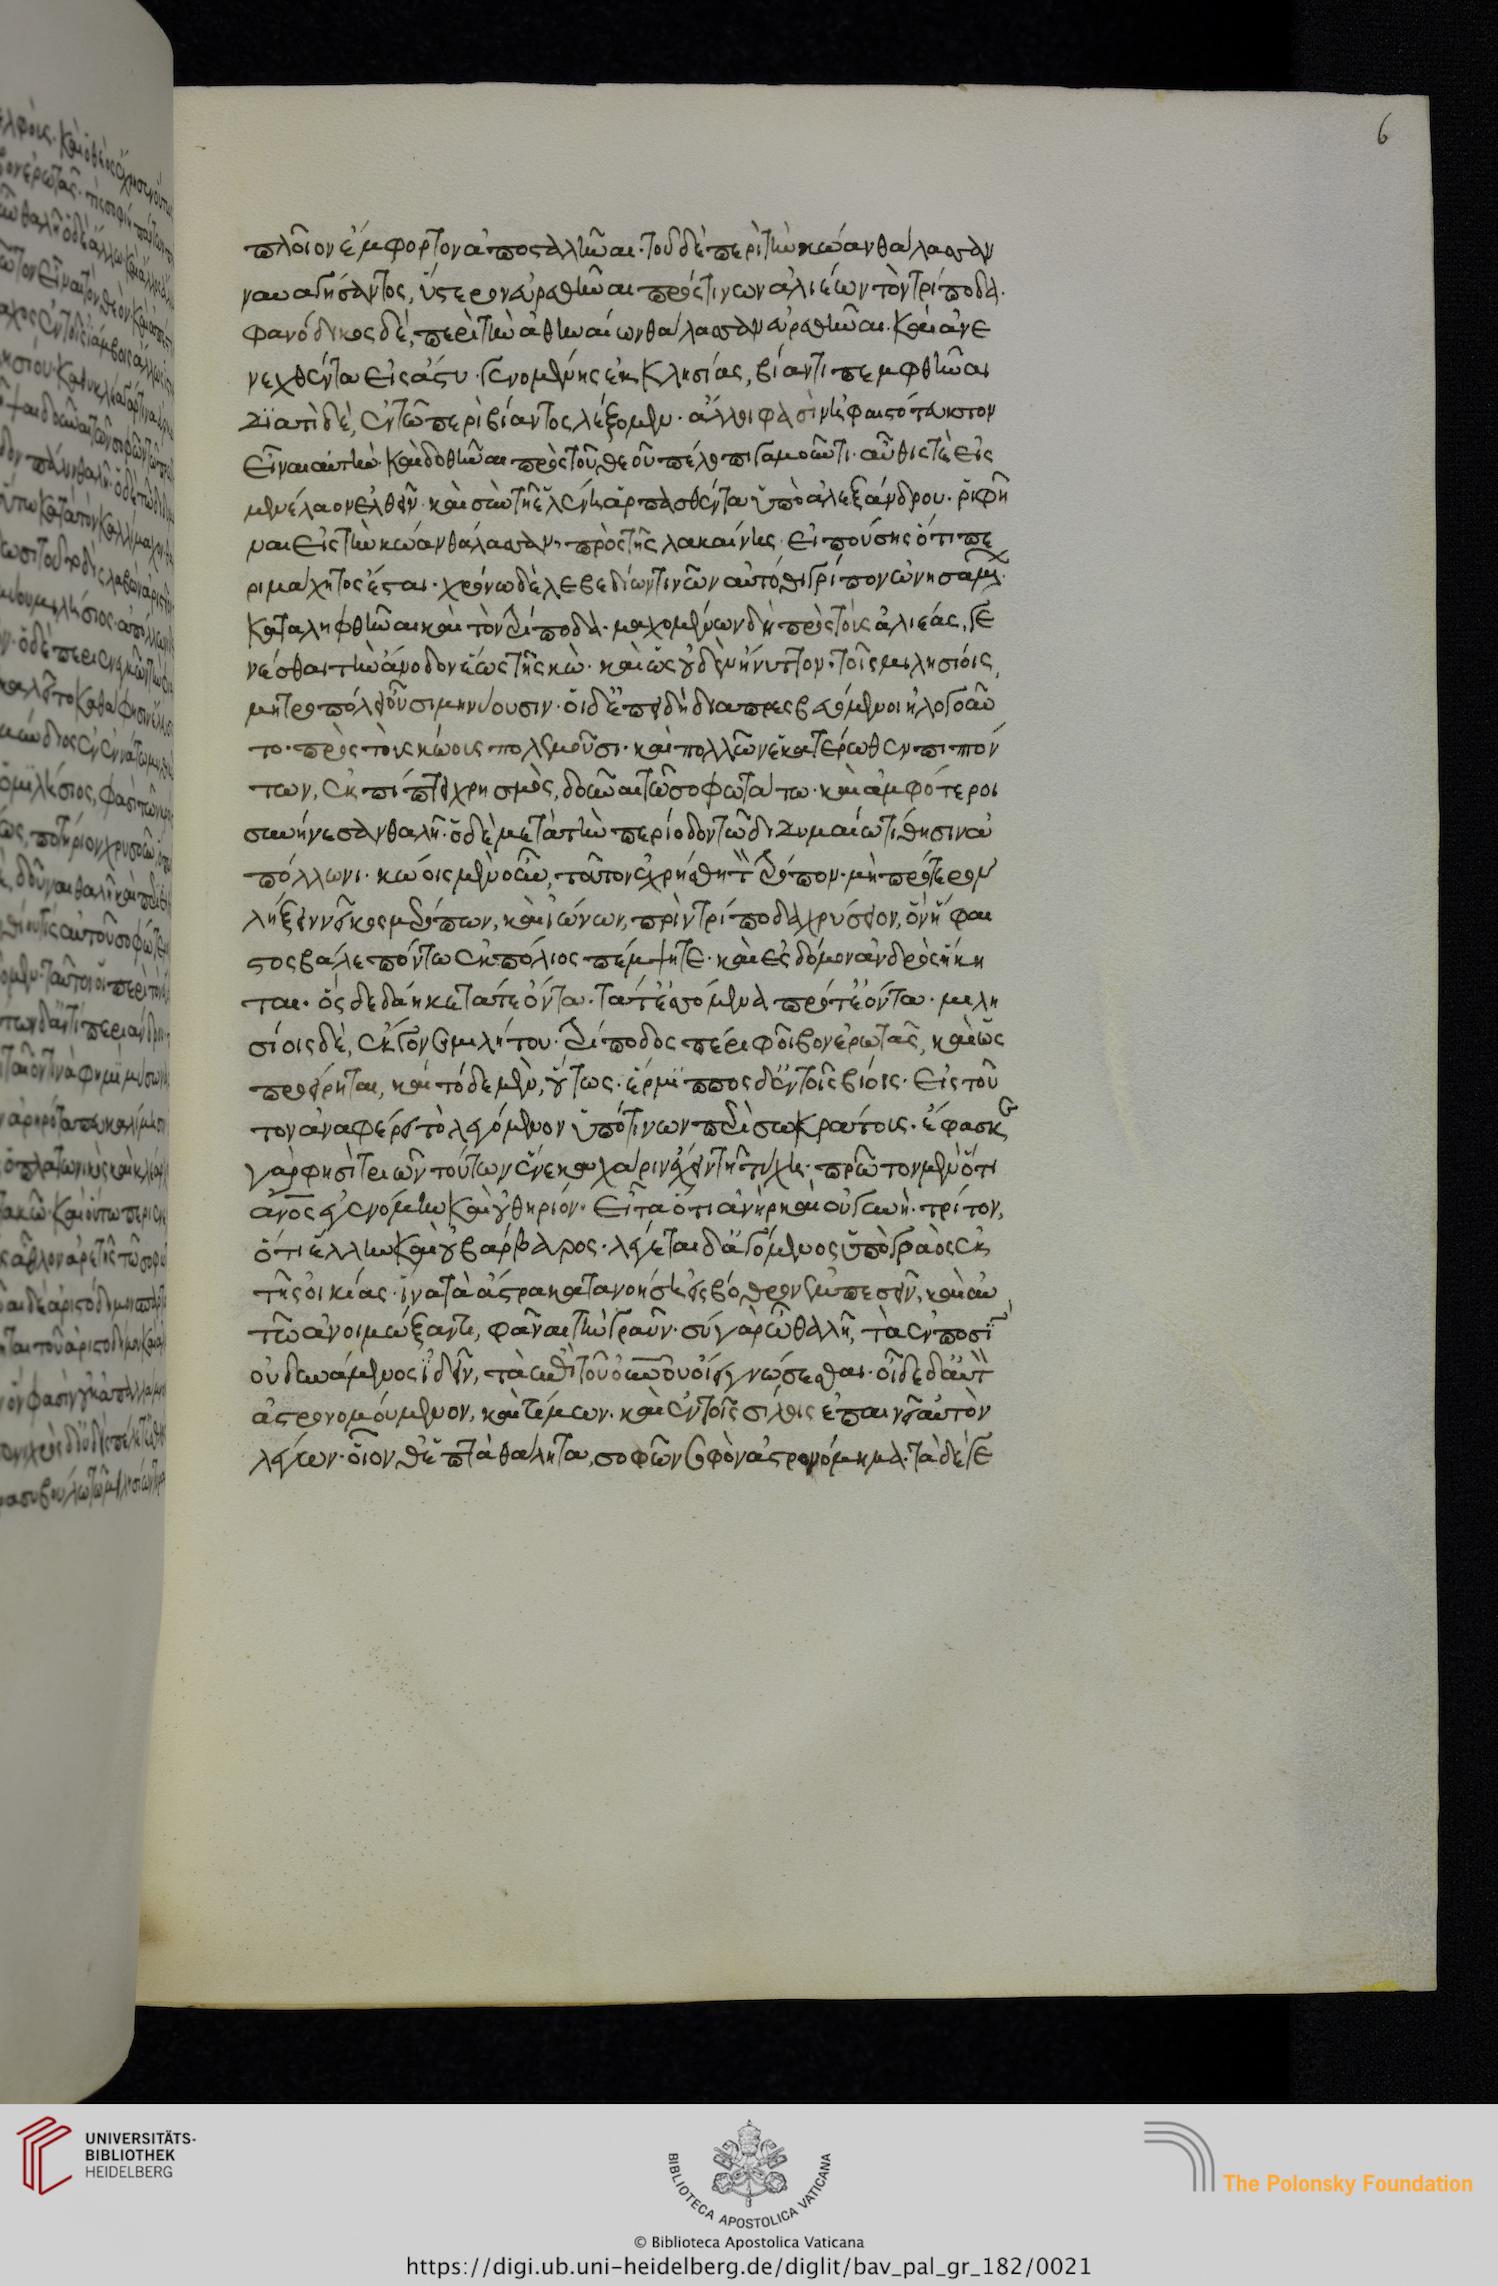 6
πλοῖον ἔμφορτον ἀποσταλῆναι· τοῦ δὲ περὶ τὴν κώαν θάλασσαν
ναυαγήσαντος, ὕστερον εὑρεθῆναι πρός τινων ἁλιέων τὸν τρίποδα.
φανόδικος δέ, περὶ τὴν ἀθηναίων θάλασσαν εὑρεθῆναι. καὶ ἀνε
νεχθέντα εἰς ἄστυ· γενομένης ἐκκλησίας, βίαντι πεμφθῆναι
διατὶ δέ, ἐν τῶ περὶ βίαντος λέξομεν· ἄλλοι φασὶν ἡφαιστότευκτον
εἶναι αὐτὸν καὶ δοθῆναι πρὸς τοῦ θεοῦ πέλοπι γαμοῦντι· αὖθίς τε εἰς
μενέλαον ἐλθεῖν· καὶ σὺν τῆ ἑλένη ἁρπασθέντα ὑπὸ ἀλεξάνδρου· ῥιφῆ
ναι εἰς τὴν κώαν θάλασσαν· πρὸς τῆς λακαίνης· εἰπούσης ὅτι πε
ριμάχητος ἔσται· χρόνω δὲ λεβεδίων τινῶν αὐτόθι γρίπον ὠνησαμ
καταληφθῆναι καὶ τὸν τρίποδα· μαχομένων δὴ πρὸς τοὺς ἁλιέας, γε
νέσθαι τὴν ἄνοδον ἕως τῆς κῶ· καὶ ὡς οὐδὲν ἤνυττον· τοῖς μιλησίοις,
μητροπόλει οὖσι μηνύουσιν· οἱ δ' ἐπειδὴ διαπρεσβευόμενοι ἠλογοῦν
το· πρὸς τοὺς κώους πολεμοῦσι· καὶ πολλῶν ἑκατέρωθεν πιπτόν
των, ἐκπίπτει χρησμὸς, δοῦναι τῶ σοφωτάτω· καὶ ἀμφότεροι
συνήνεσαν θαλῆ· ὁ δὲ μετὰ τὴν περίοδον τῶ διδυμαίω τίθησιν ἀ
πόλλωνι· κώοις μὲν οὖν, τοῦτον ἐχρήσθη τ τρόπον· μὴ πρότερον
λήξειν νεῖκος μερόπων, καὶ ἰώνων, πρὶν τρίποδα χρύσειον, ὃν ἥφαι
στος βάλε πόντω ἐκ πόλιος πέμψητε· καὶ ἐς δόμον ἀνδρὸς ἵκη
ται· ὃς δεδάηκε τά τ' ἐόντα· τά τ' ἐσόμενα πρό τ' ἐόντα· μιλη
σίοις δέ, ἔκγονε μιλήτου· τρίποδος πέρι φοῖβον ἐρωτᾶς, καὶ ὡς
προείρηται, καὶ τόδε μὲν, οὕτως· ἕρμιππος δ' ἐν τοῖς βίοις· εἰς τοῦ
τον ἀναφέρει τὸ λεγόμενον ὑπό τινων περὶ σωκράτους· ἔφασκε
γὰρ φησὶ τριῶν τούτων ἕνεκα χάριν ἔχειν τῆ τύχη· πρῶτον μὲν ὅτι
ἄνος ἐγενόμην καὶ οὐ θηρίον· εἶτα ὅτι ἀνὴρ καὶ οὐ γυνή· τρίτον,
ὅτι ἕλλην καὶ οὐ βάρβαρος· λέγεται δ' ἀγόμενος ὑπὸ γραὸς ἐκ
τῆς οἰκίας· ἵνα τὰ ἄστρα κατανοήση εἰς βόθρον ἐμπεσεῖν, καὶ αὐ
τῶ ἀνοιμώξαντι, φᾶναι τὴν γραῦν· σὺ γὰρ ὦ θαλῆ, τὰ ἐν ποσὶ
οὐ δυνάμενος ἰδεῖν, τὰ ἐπὶ τοῦ οὐνοῦ οἴει γνώσεσθαι· οἶδε δ' αὐτ
ἀστρονομούμενον, καὶ τίμων· καὶ ἐν τοῖς σίλλοις ἐπαινεῖ αὐτὸν
λέγων· οἷόν θ' ἑπτὰ θάλητα, σοφῶν σοφὸν ἀστρονόμημα· τὰ δὲ γε
UNIVERSITÄTS-
BIBLIOTHEK
HEIDELBERG
BIBLIOTECA APOSTOLICA VATICANA
© Biblioteca Apostolica Vaticana
The Polonsky Foundation
https://digi.ub.uni-heidelberg.de/diglit/bav_pal_gr_182/0021